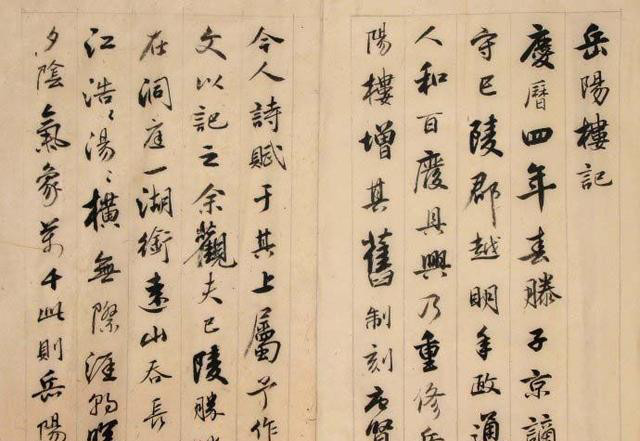 岳陽樓記
慶曆四年春滕子京謫
守巴陵郡越明年政通
人和百廢具興乃重修岳
陽樓增其舊制刻唐賢
今人詩賦于其上屬予作
文以記之余觀夫巴陵勝
在洞庭一湖銜遠山吞長
江浩〻湯〻橫無際涯朝暉
夕陰氣象萬千此則岳陽